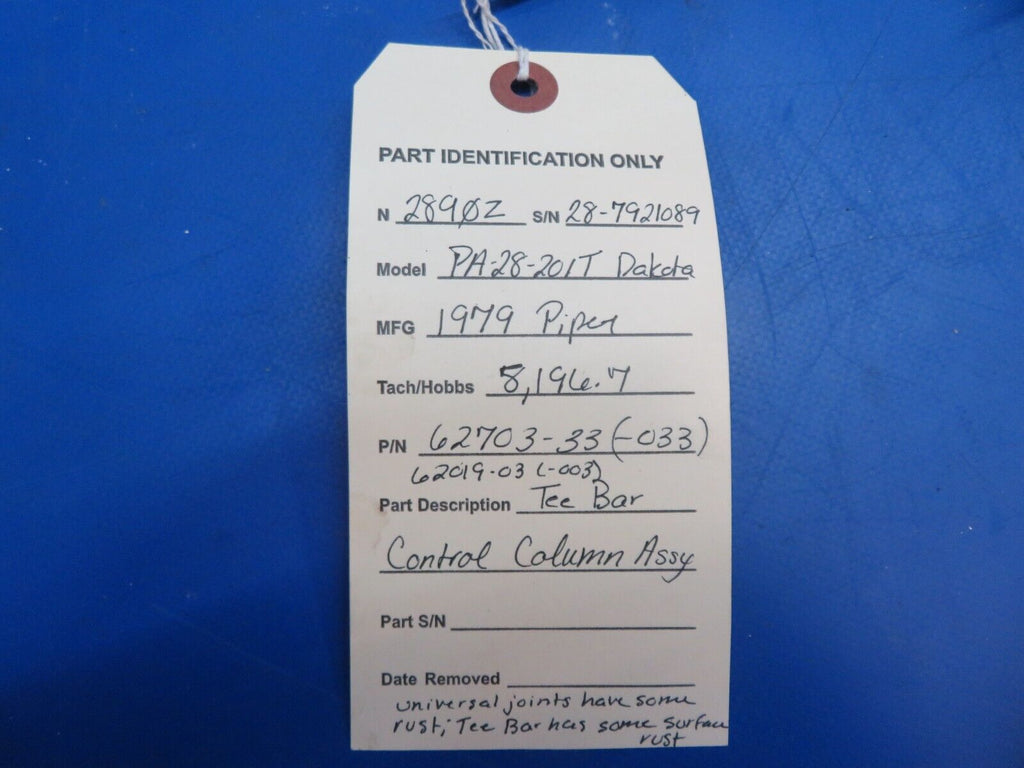 PART IDENTIFICATION ONLY
N 2890Z S/N 28-7921089
Model PA-28-201T Dakota
MFG 1979 Piper
Tach/Hobbs 8,196.7
P/N 62703-33 (-033)
62019-03 (-003)
Part Description Tee Bar
Control Column Assy
Part S/N
Date Removed
universal joints have some
rust; Tee Bar has some surface
rust